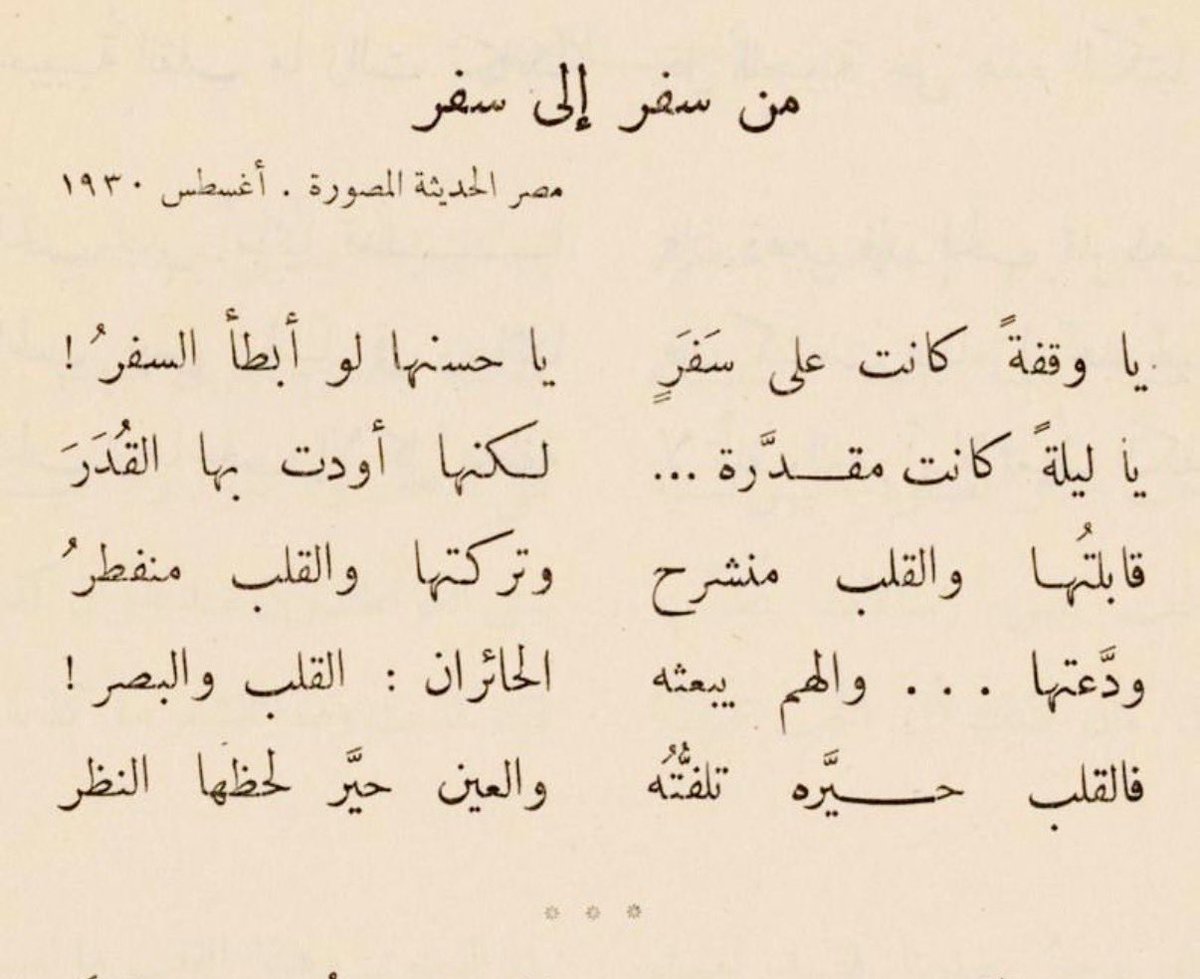 من سفر إلى سفر
مصر الحديثة المصورة . أغسطس ١٩٣٠
يا وقفةً كانت على سَفَرٍ يا حسنها لو أبطأ السفرُ !
يا ليلةً كانت مقدَّرة ... لكنها أودت بها القُدَرَ
قابلتُها والقلب منشرح وتركتها والقلب منفطرُ
ودَّعتها . . . والهم يبعثه الحائران : القلب والبصر !
فالقلب حيَّره تلفتُّهُ والعين حيَّر لحظها النظر
* * *